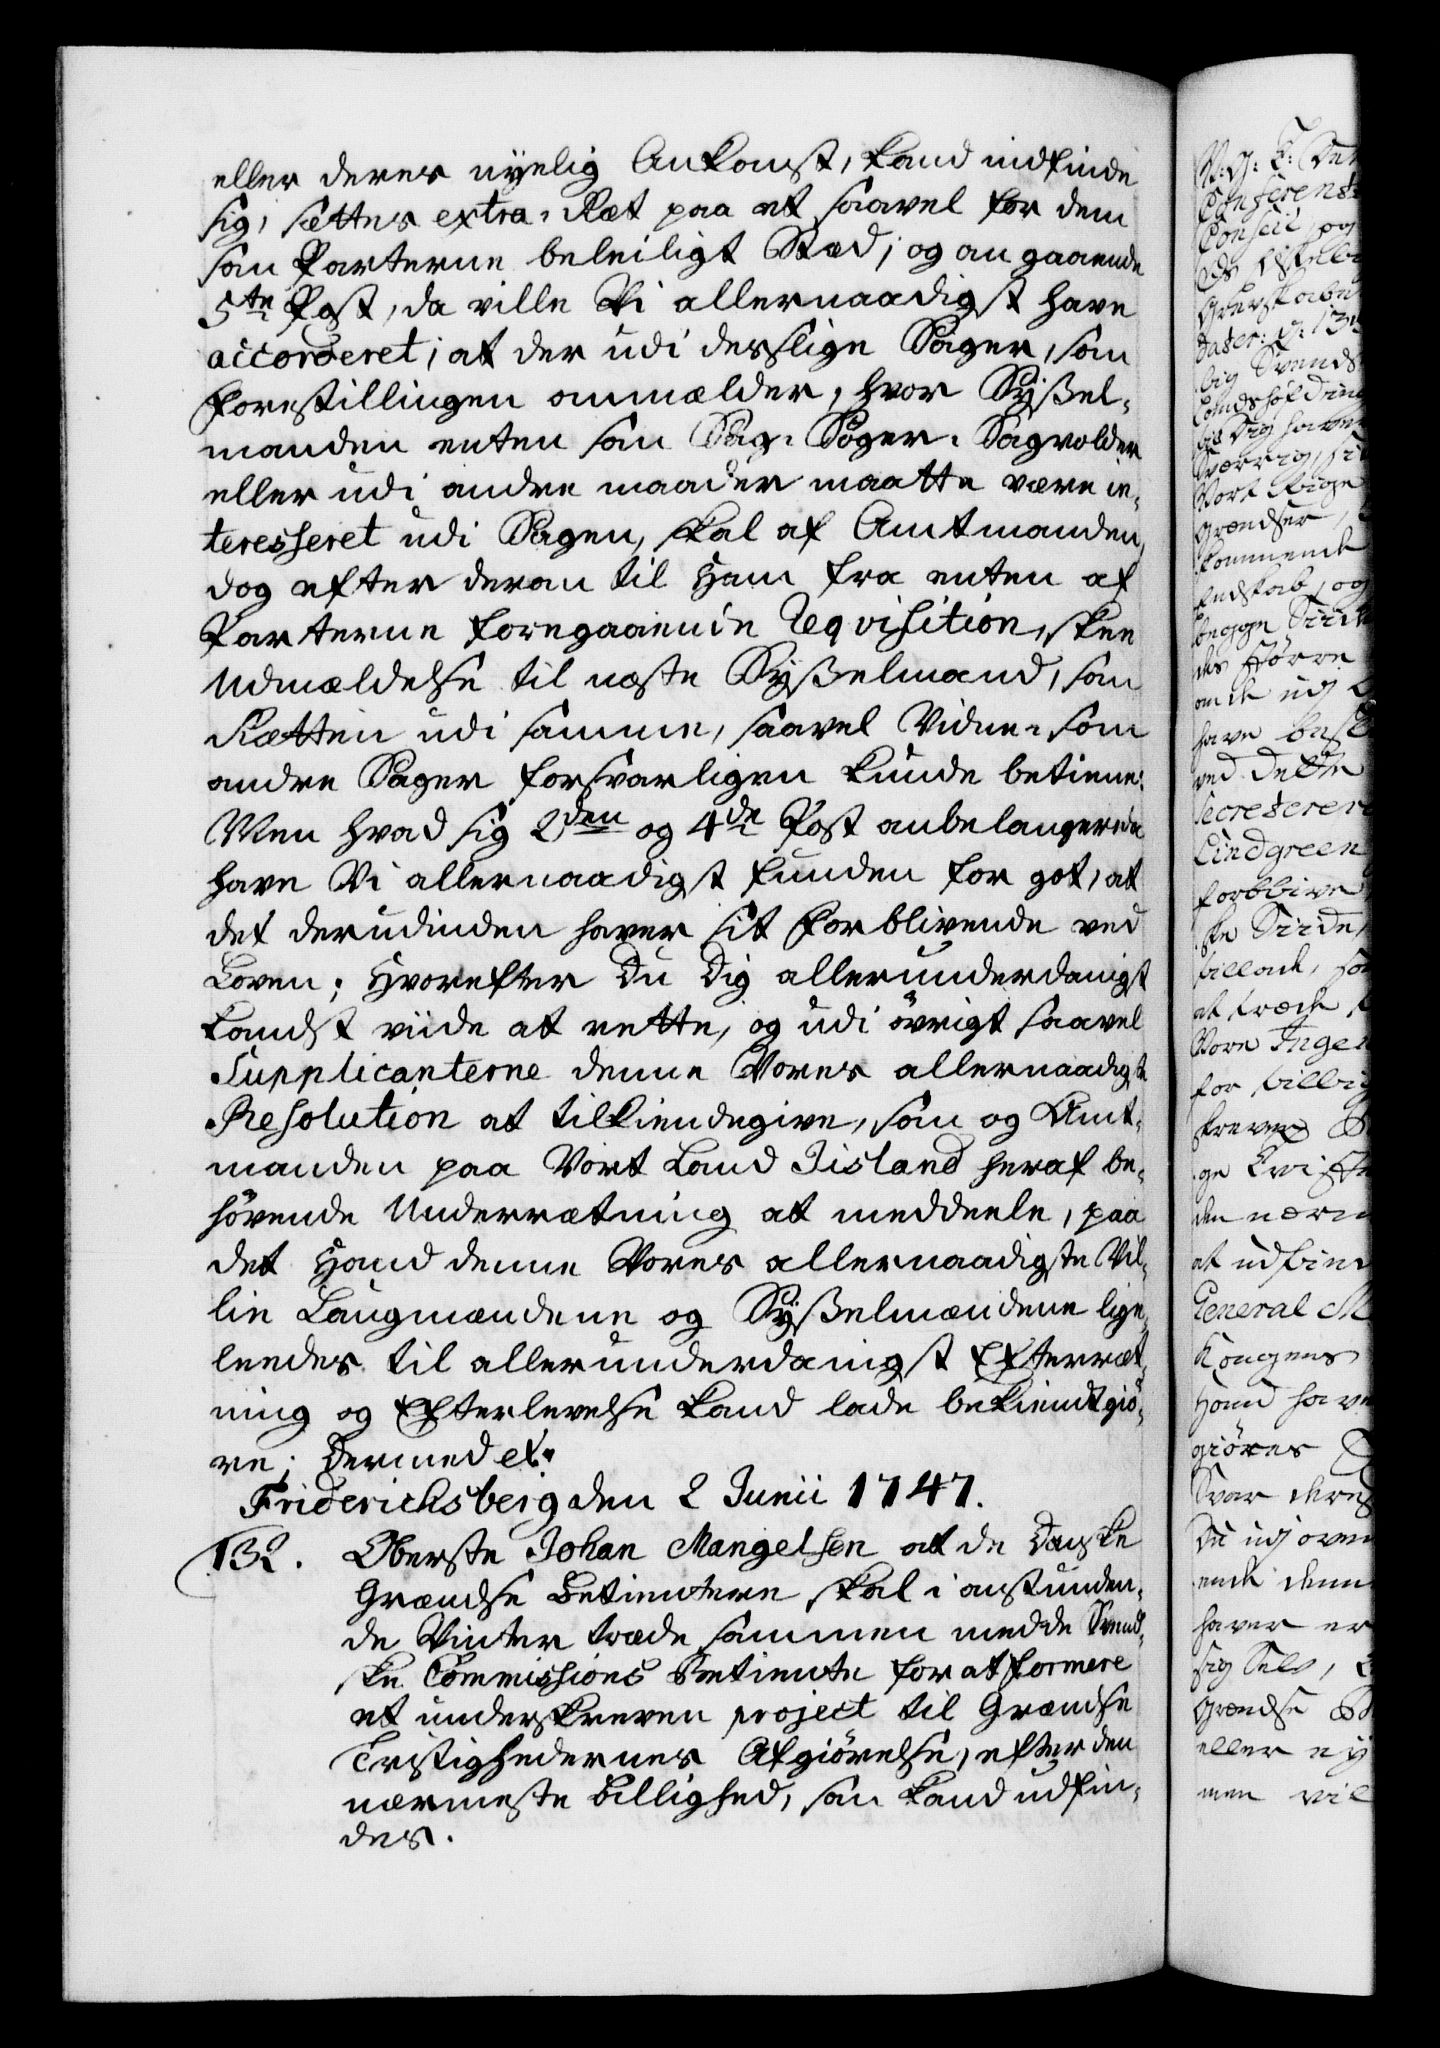 eller deres nyelig Ankomst, kand indfinde
sig, sættes extra-Ræt paa et saavel for dem
som Parterne beleiligt Stæd; og angaaende
5te Post, da ville Vi allernaadigst have
accorderet; at der udi desslige Sager, som
forestillingen ommælder, hvor Sysel-
manden enten som Sag-Søger, Sagvolder
eller udi andre maader maatte være in-
teresseret udi Sagen, skal af Amtmanden,
dog efter derom til Ham fra enten af
Parterne foregaaende Reqvisition, skee
Udmældelse til næste Sysselmand, som
Rætten udi samme, saavel Vidne- som
andre Sager forsvarligen kunde betiene:
Men hvad sig 2den og 4de Post anbelangende
have Vi allernaadigst funden for got, at
det derudinden haver sit forblivende ved
Loven; Hvorefter Du Dig allerunderdanigst
kandst viide at rette, og udi övrigt saavel
Supplicanterne denne Vores allernaadigste
Resolution at tilkiendegive, som og Amt-
manden paa Vort Land Iisland heraf be-
hörende Underrætning at meddeele, paa
det Hand denne Vores allernaadigste Vil-
lie Laugmændene og Sysselmændene lige-
leedes til allerunderdanigst Efterræt-
ning og Efterlevelse kand lade bekiendtgiö-
re; Dermed etc.
Friderichsberg den 2 Junii 1747.
132. Oberste Johan Mangelsen at de Danske
Grændse Betientere skal i anstunden-
de Vinter træde sammen med de Svend-
ske Commissions Betiente for at formere
et underskreven project til Grændse
Tvistighedernes Afgiörelse, efter den
nærmeste billighed, som kand udfin-
des.